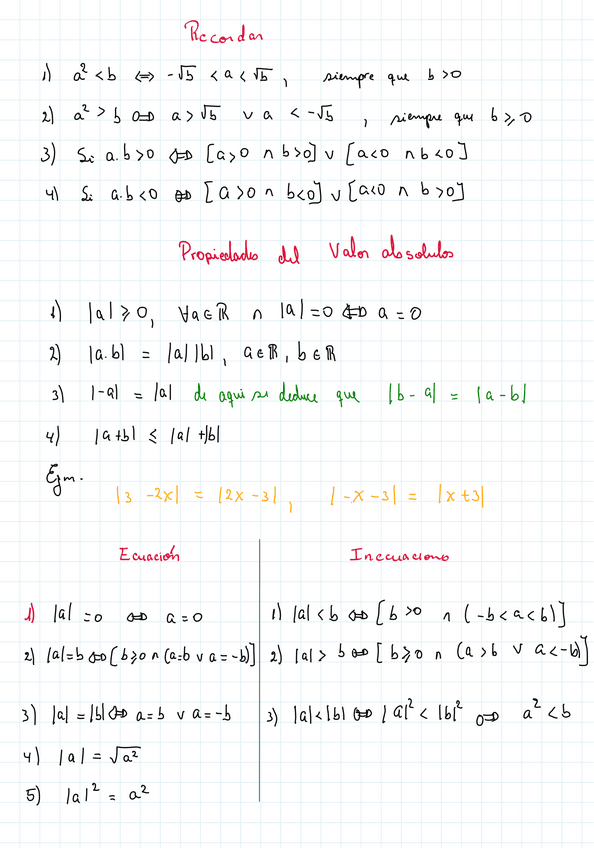 Recordar
1) a² < b ⇔ -√b < a < √b , siempre que b > 0
2) a² > b ⇔ a > √b ∨ a < -√b , siempre que b ⩾ 0
3) Si a.b > 0 ⇔ [a > 0 ∩ b > 0] ∨ [a < 0 ∩ b < 0]
4) Si a.b < 0 ⇔ [a > 0 ∩ b < 0] ∨ [a < 0 ∩ b > 0]
Propiedades del Valor absolutos
1) |a| ⩾ 0, ∀a ∈ ℝ ∩ |a| = 0 ⇔ a = 0
2) |a.b| = |a| |b| , a ∈ ℝ , b ∈ ℝ
3) |-a| = |a| de aqui se deduce que |b - a| = |a - b|
4) |a + b| ≤ |a| + |b|
Ejm.
|3 - 2x| = |2x - 3| , |-x - 3| = |x + 3|
Ecuación
1) |a| = 0 ⇔ a = 0
2) |a| = b ⇔ [b ⩾ 0 ∩ (a = b ∨ a = -b)]
3) |a| = |b| ⇔ a = b ∨ a = -b
4) |a| = √a²
5) |a|² = a²
Inecuaciones
1) |a| < b ⇔ [b > 0 ∩ (-b < a < b)]
2) |a| > b ⇔ [b ⩾ 0 ∩ (a > b ∨ a < -b)]
3) |a| < |b| ⇔ |a|² < |b|² ⇔ a² < b